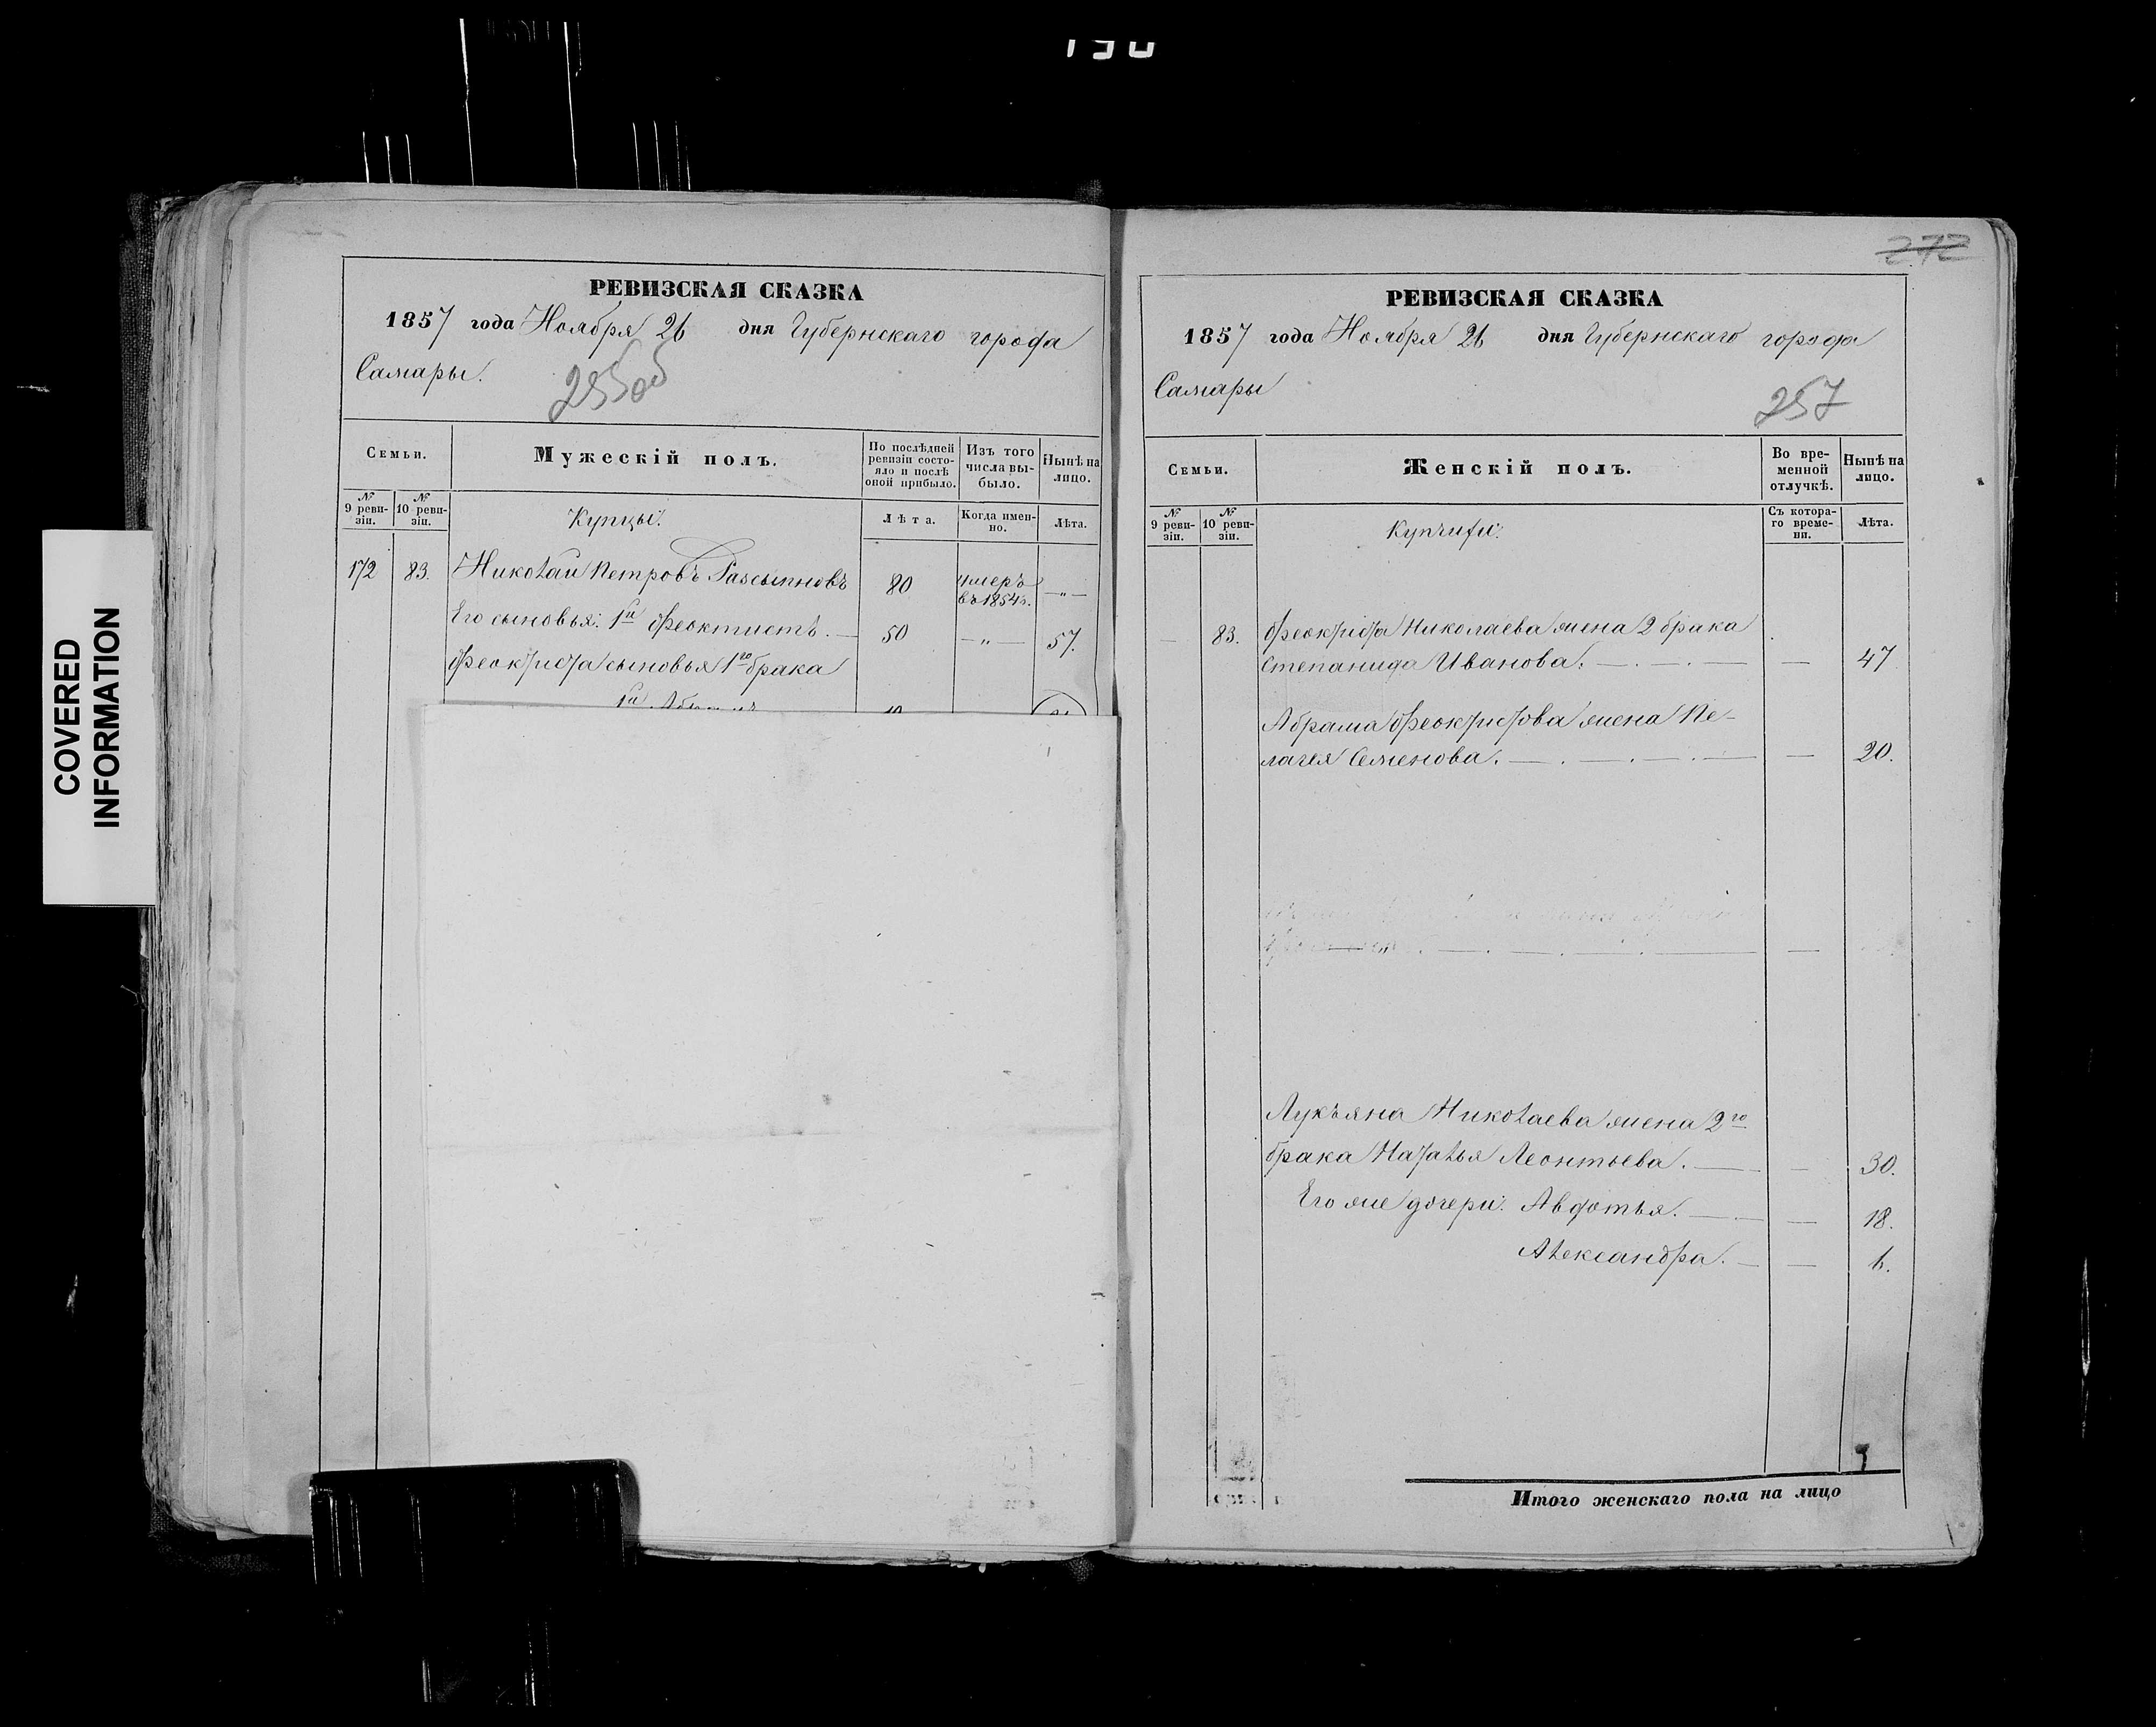 COVERED
INFORMATION
РЕВИЗСКАЯ СКАЗКА
1857 года Ноября 26 дня Губернскаго города
Самары.
255об
Семьи.
Мужескій полъ.
По послѣдней
ревизіи состо-
яло и послѣ
оной прибыло.
Изъ того
числа вы-
было.
Нынѣ на
лицо.
№
9 реви-
зіи.
№
10 реви-
зіи.
Купцы.
Лѣта.
Когда имен-
но.
Лѣта.
172 83. Николай Петровъ Разсыпновъ 80 умеръ
въ 1854г. —„—
Его сыновья: 1й Феоктистъ. — 50 —„— 57.
Феоктиста сыновья 1го брака
1й
272
РЕВИЗСКАЯ СКАЗКА
1857 года Ноября 26 дня Губернскаго города
Самары
257
Семьи.
Женскій полъ.
Во вре-
менной
отлучкѣ.
Нынѣ на
лицо.
№
9 реви-
зіи.
№
10 реви-
зіи.
Купчихи.
Съ котора-
го време-
ни.
Лѣта.
— 83. Феоктиста Николаева жена 2 брака
Степанида Иванова. — — 47
Абрама Феоктистова жена Пе-
лагея Семенова. — — 20.
Лукъяна Николаева жена 2го
брака Наталья Леонтьева. — — 30.
Его же дочери: Авдотья. — — 18.
Александра. — — 6.
Итого женскаго пола на лицо